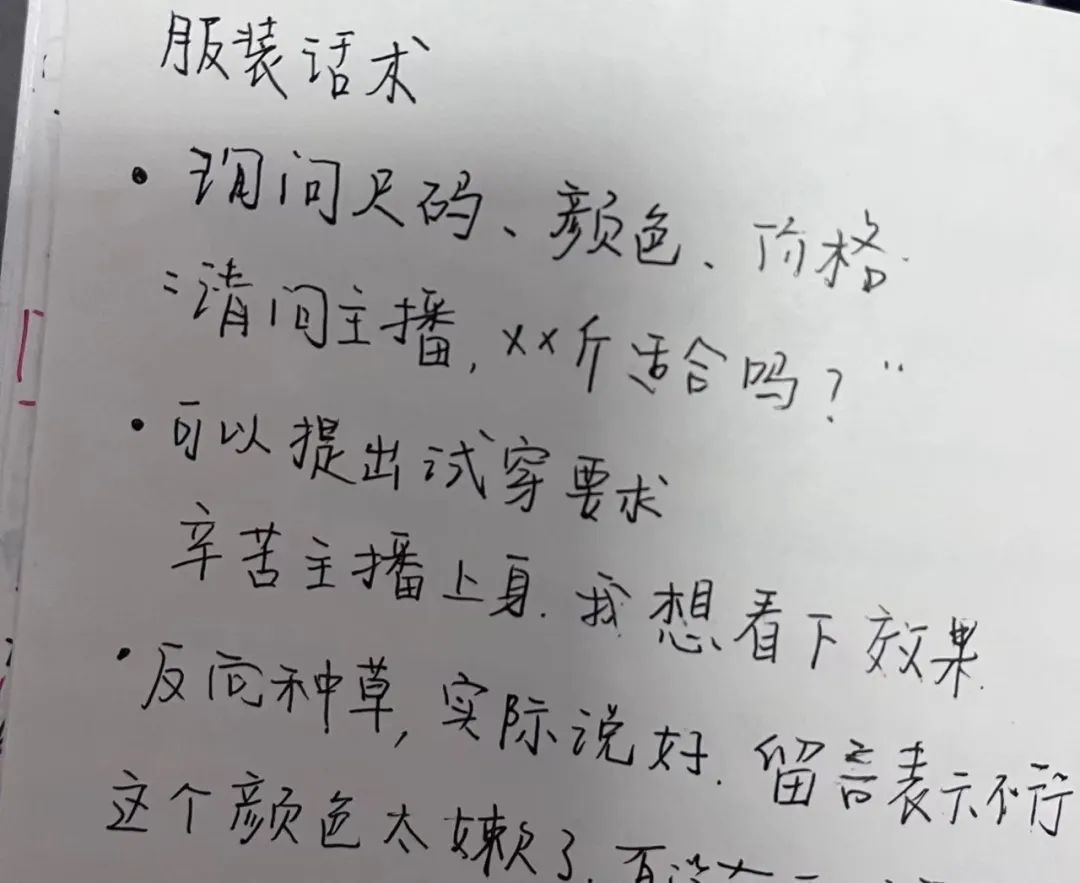 服装话术
· 询问尺码、颜色、价格.
"请问主播,××斤适合吗?"
· 可以提出试穿要求
辛苦主播上身.我想看下效果.
· 反向种草,实际说好.留言表示不行
这个颜色太嫩了.